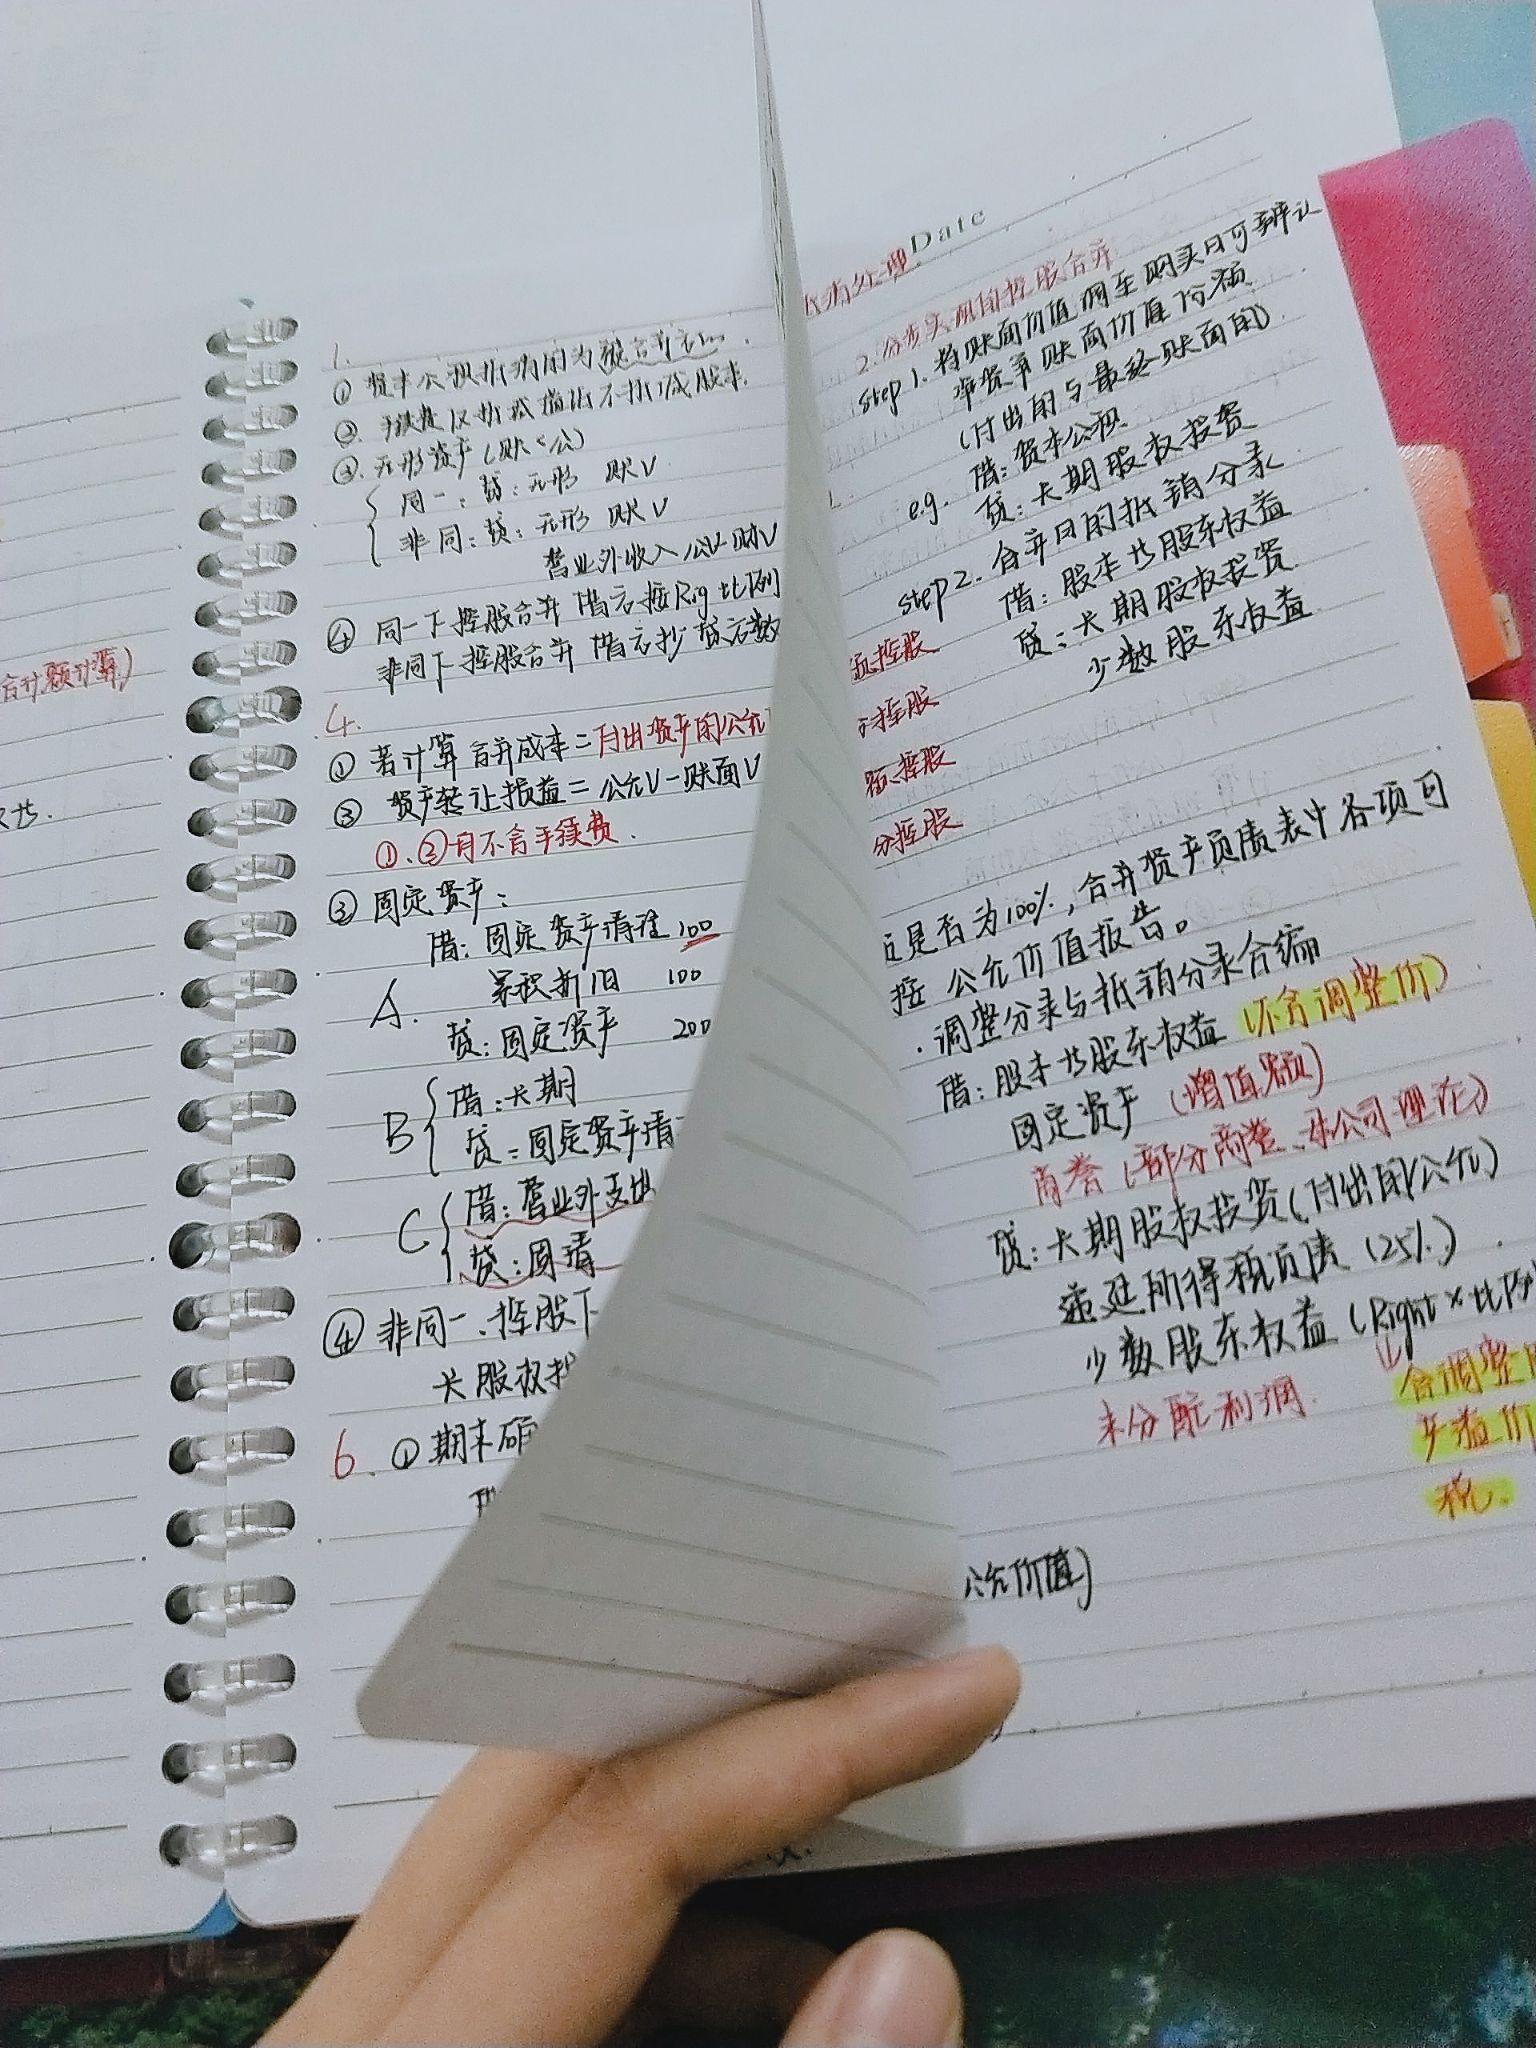 合并额计算)
1.
① 资本公积抵销的为被合并方
② 手续费仅
③ 无形资产(账<公)
同一：贷：无形 账V
非同：贷：无形 账V
营业外收入 公V-账V
④ 同一下控股合并 借方按Rig比例
非同下控股合并 借方抄贷方数
4.
① 若计算合并成本=付出资产的公允
② 资产转让损益=公允V-账面V
①、②均不含手续费.
③ 固定资产：
借：固定资产清理 100
A. 累积折旧 100
贷：固定资产 200
B 借：长期
贷：固定资产清
C 借：营业外支出
贷：固清
④ 非同一、控股下
长股权投
6. ① 期末
Date
2.分步实现的控股合并
Step 1. 将账面价值调至购买日可辨认
净资产账面价值份额
(付出的与最终账面的)
e.g. 借：资本公积
贷：长期股权投资
step 2. 合并日的抵销分录
借：股本等股东权益
贷：长期股权投资
少数股东权益
控股
控股
控股
分控股
是否为100%，合并资产负债表中各项可
按公允价值报告。
调整分录与抵销分录合编
借：股本等股东权益 (不含调整价)
固定资产 (增值额)
商誉 (部分商誉、母公司理论)
贷：长期股权投资(付出的公允)
递延所得税负债 (25%)
少数股东权益 (Right×比例
未分配利润.
含调整
产值价
税.
公允价值)